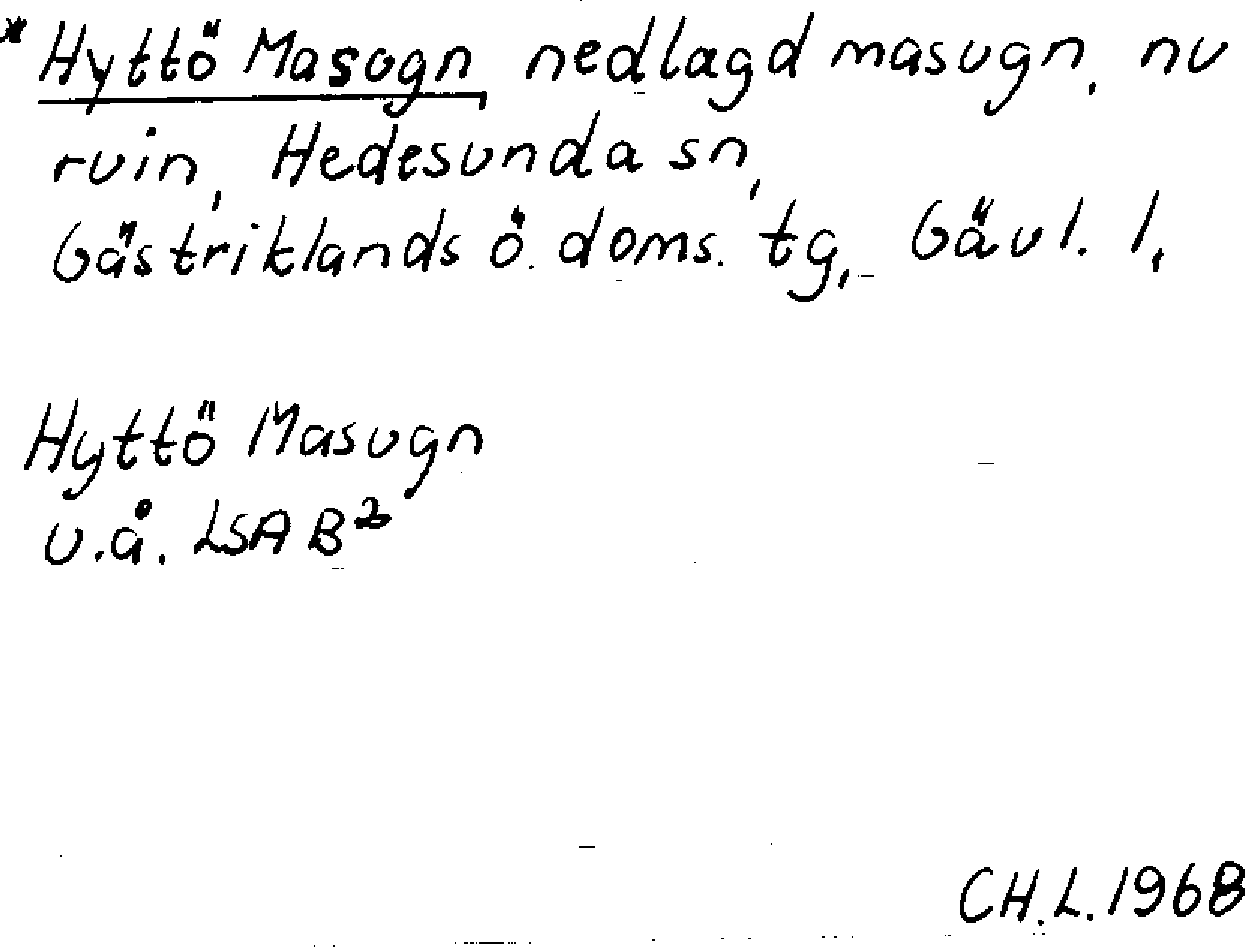 * Hyttö Masugn, nedlagd masugn, nu
ruin, Hedesunda sn,
Gästriklands ö. doms. tg, Gävl. l,
Hyttö Masugn
u.å. LSA B²
CH.L.1968